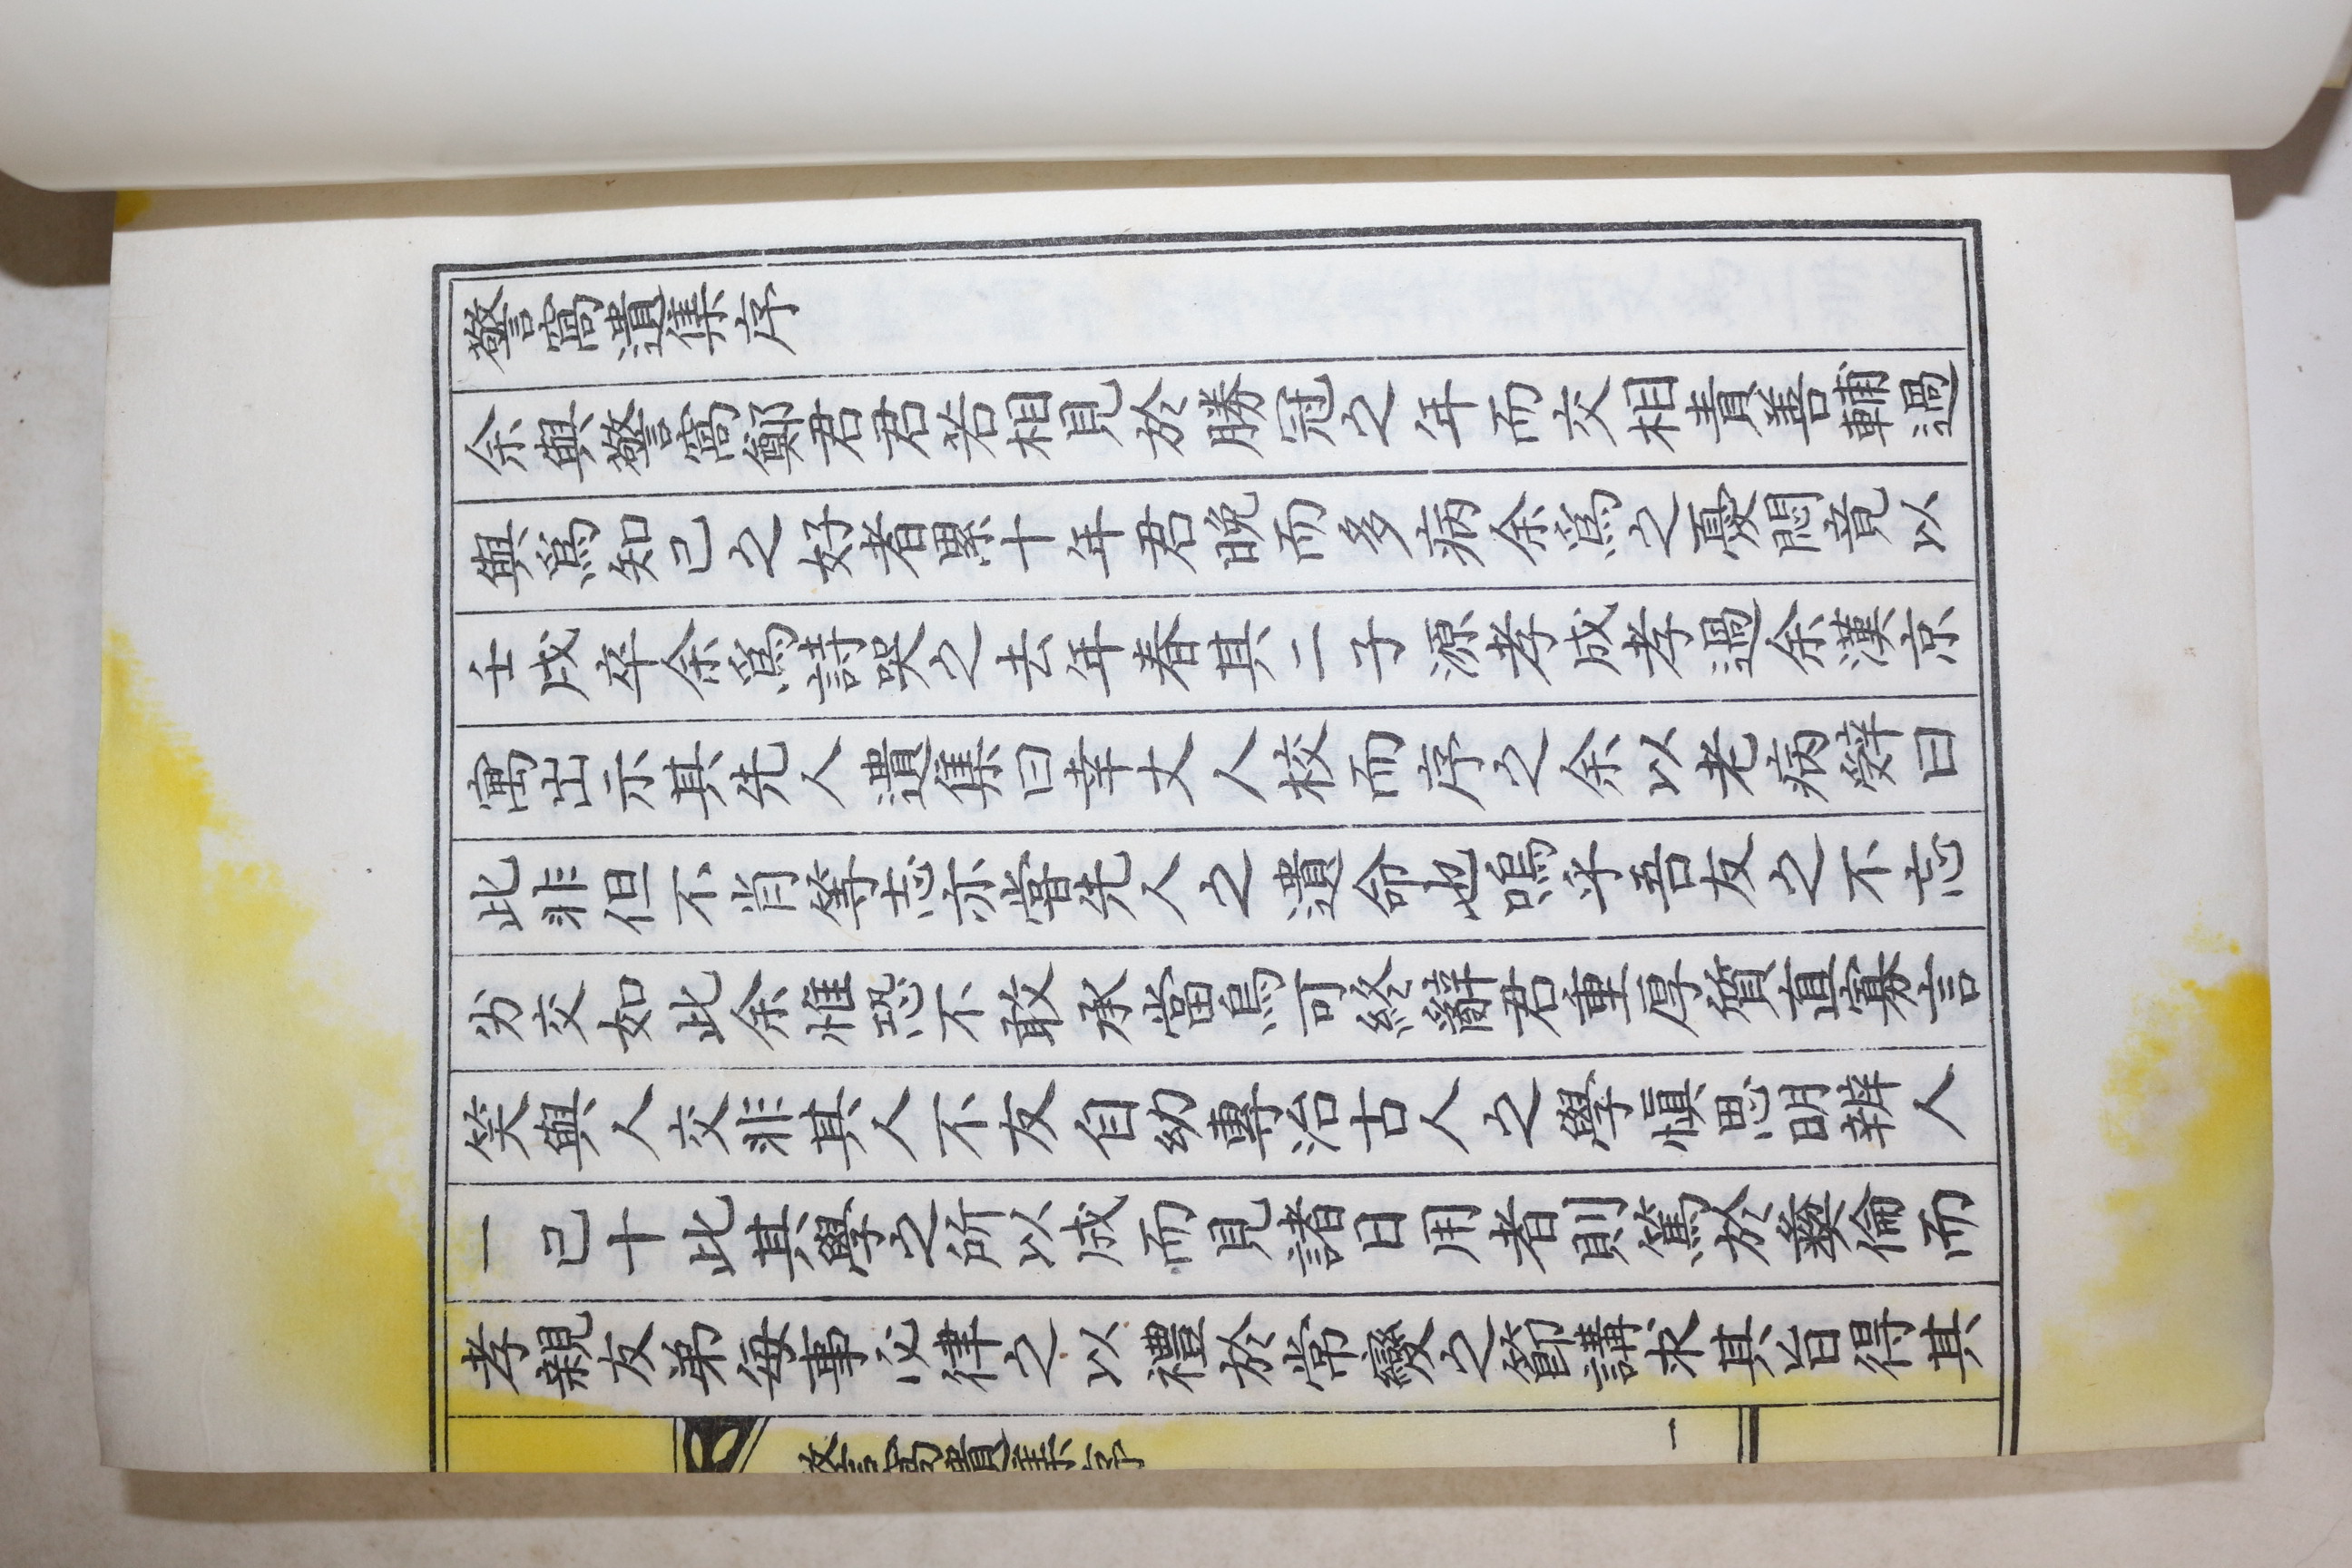 警窩遺集序
余與警窩鄭君君若相見於勝冠之年而交相責善輔過
與爲知己之好者累十年君晩而多病余爲之憂悶竟以
壬戌卒余爲詩哭之去年春其二子源孝成孝過余漢京
寓出示其先人遺集曰幸丈人校而序之余以老病辤曰
此非但不肖等志亦嘗先人之遺命也嗚乎吾友之不忘
劣交如此余惟恐不敢承當烏可終辭君重厚質直寡言
笑與人交非其人不友自幼專治古人之學愼思明辨人
一己十此其學之所以成而見諸日用者則篤於彜倫而
孝親友弟每事必律之以禮於常變之節講求其旨得其
警窩遺集序
一